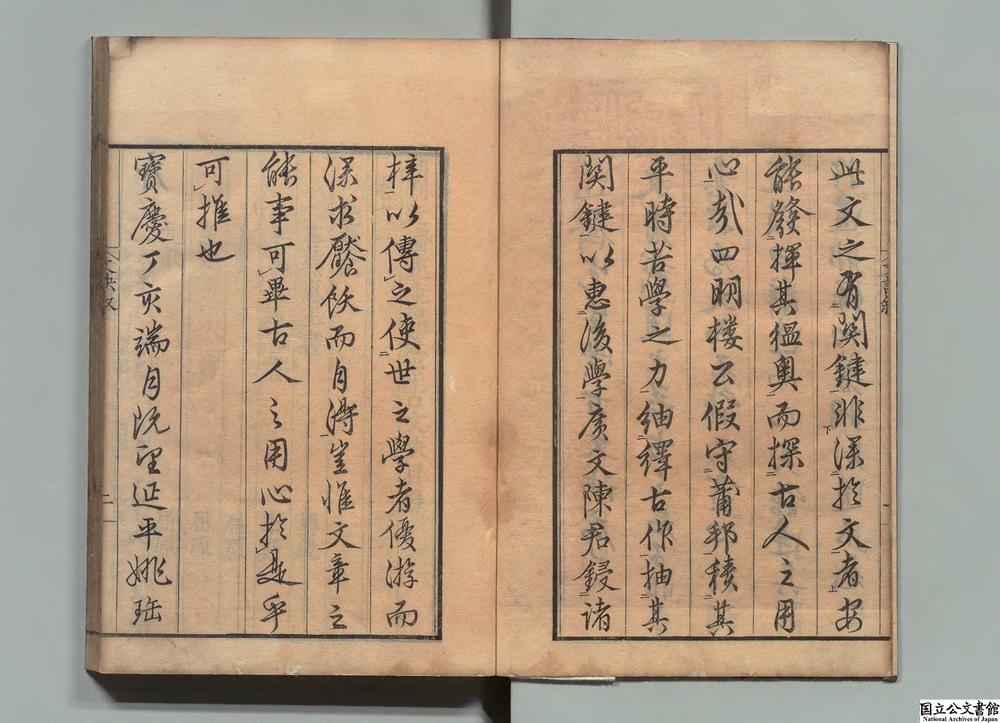 此文之有関鍵非深於文者安
能發揮其縕奥而探古人之用
心哉四明楼公假守莆邦積其
平時苦學之力紬繹古作抽其
関鍵以惠後學廣文陳君鋟諸
梓以傳之使世之學者優游而
深求饜飫而自得豈惟文章之
能事可畢古人之用心於是乎
可推也
寶慶丁亥端月既望延平姚珤
国立公文書館
National Archives of Japan